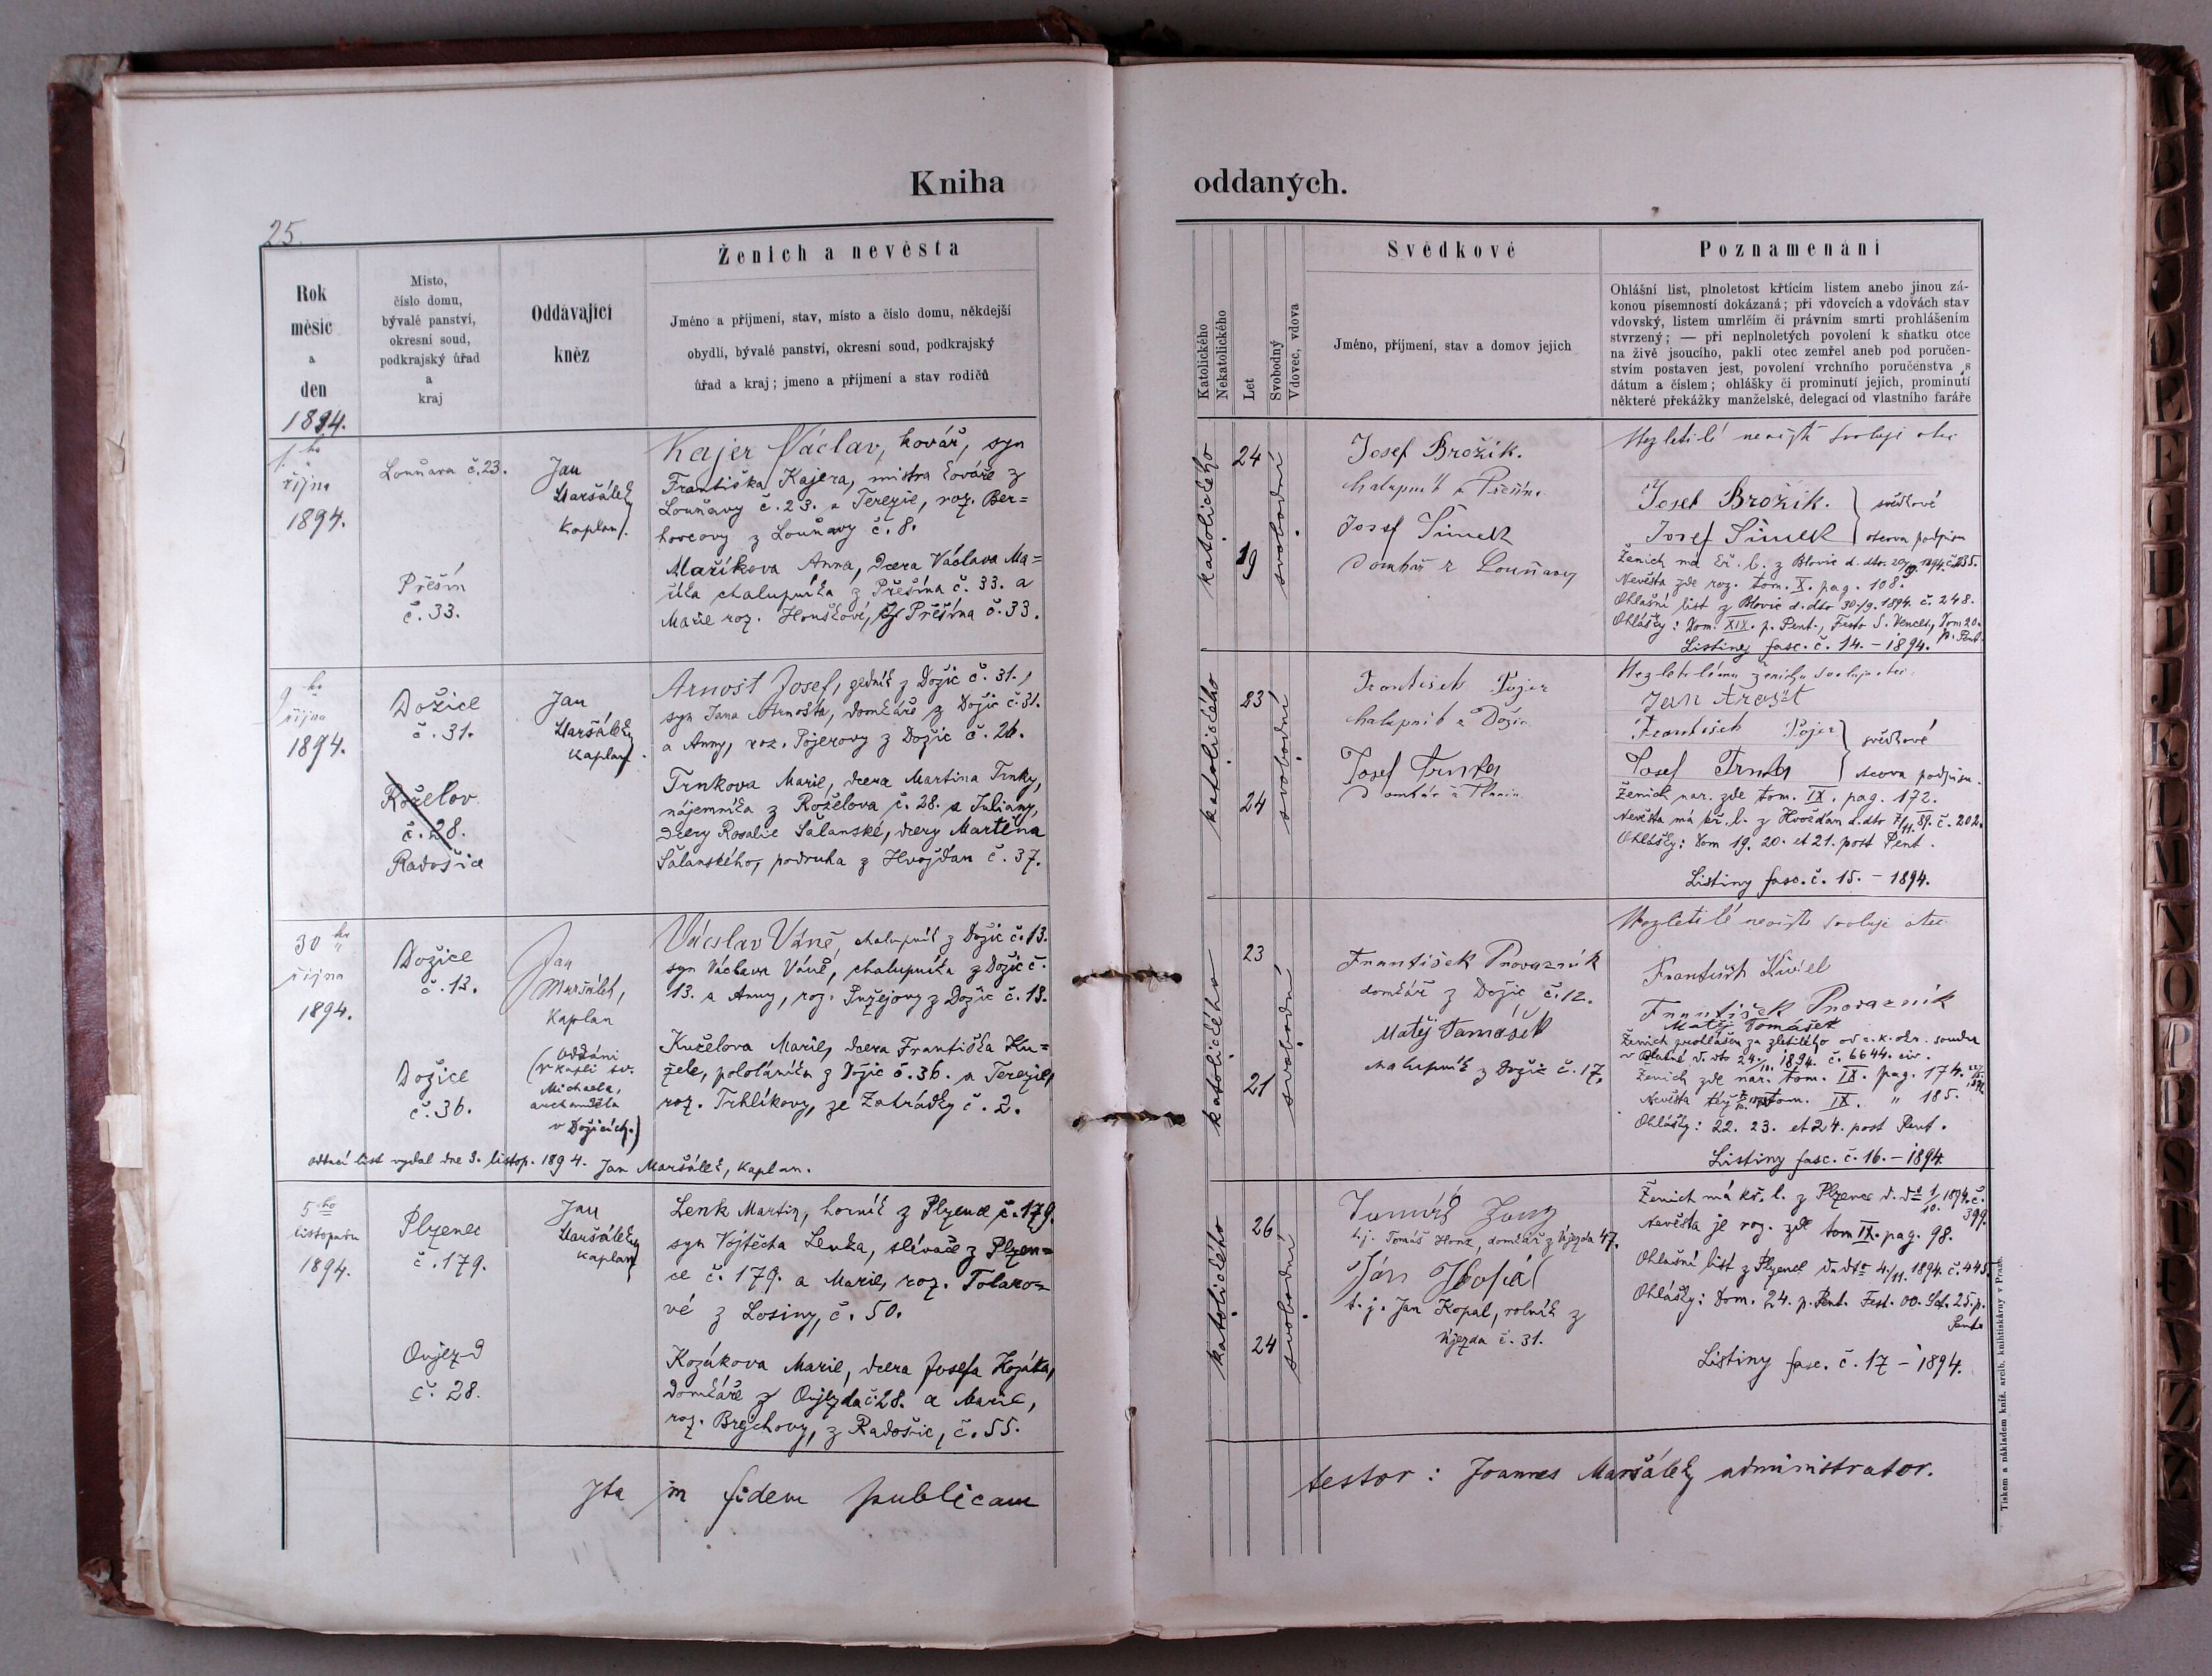 Kniha
oddaných.
25.
Rok
měsíc
a
den
1894.
Místo,
číslo domu,
bývalé panství,
okresní soud,
podkrajský úřad
a
kraj
Oddávající
kněz
Ženich a nevěsta
Jméno a příjmení, stav, místo a číslo domu, někdejší
obydlí, bývalé panství, okresní soud, podkrajský
úřad a kraj; jmeno a příjmení a stav rodičů
Katolického
Nekatolického
Let
Svobodný
Vdovec, vdova
Svědkové
Jméno, příjmení, stav a domov jejich
Poznamenání
Ohlášní list, plnoletost křtícím listem anebo jinou zá-
konou písemností dokázaná; při vdovcích a vdovách stav
vdovský, listem umrlčím či právním smrti prohlášením
stvrzený; — při neplnoletých povolení k sňatku otce
na živě jsoucího, pakli otec zemřel aneb pod poručen-
stvím postaven jest, povolení vrchního poručenstva s
dátum a číslem; ohlášky či prominutí jejich, prominutí
některé překážky manželské, delegací od vlastního faráře
1. ho
října
1894.
Louňava č. 23.
Přešín
č. 33.
Jan
Maršálek
kaplan.
Kajer Václav, kovář, syn
Františka Kajera, mistra kováře z
Louňavy č. 23. a Terezie, roz. Ber-
hovcovy z Louňavy č. 8.
Maříkova Anna, dcera Václava Ma-
říka chalupníka z Přešína č. 33. a
Marie roz. Houškové, z Přešína č. 33.
katolického
24
19
svobodní
Josef Brožík.
chalupník z Přešína
Josef Šimek
domkář z Louňavy
Nezletilé nevěstě svoluje otec
Josef Brožík. } svědkové
Josef Šimek } otcova podpisu
Ženich má kř. l. z Blovic d. dto. 20/9. 1894. č. 235.
Nevěsta zde roz. tom. X. pag. 108.
Ohlášní list z Blovic d. dto 30./9. 1894. č. 248.
Ohlášky: Dom. XIX. p. Pent., Festo S. Vencesl., Dom 20.
p. Pent.
Listiny fasc. č. 14. – 1894.
9 ho
října
1894.
Dožice
č. 31.
Roželov
č. 28.
Radošice
Jan
Maršálek
kaplan.
Arnošt Josef, zedník z Dožic č. 31.,
syn Jana Arnošta, domkáře z Dožic č. 31.
a Anny, roz. Pojerovy z Dožic č. 26.
Trnkova Marie, dcera Martina Trnky,
nájemníka z Roželova č. 28. a Juliany,
dcery Rosalie Šalanské, dcery Martina
Šalanského, podruha z Hvožďan č. 37.
katolického
23
24
svobodní
František Pojer
chalupník z Dožic
Josef Trnka
Nezletilému ženichu svoluje otec.
Jan Arnošt
František Pojer } svědkové
Josef Trnka } otcova podpisu.
Ženich nar. zde tom. IX. pag. 172.
Nevěsta má kř. l. z Hvožďan d. dto 7/11. 89. č. 202.
Ohlášky: Dom 19. 20. et 21. post Pent.
Listiny fasc. č. 15. – 1894.
30 ho
října
1894.
Dožice
č. 13.
Dožice
č. 36.
Jan
Maršálek,
kaplan
(Oddáni
v kapli sv.
Michaela,
archanděla
v Dožicích.)
Václav Váně, chalupník z Dožic č. 13.
syn Václava Váně, chalupníka z Dožic č.
13. a Anny, roz. Pužejovy z Dožic č. 18.
Kuželova Marie, dcera Františka Ku-
žele, pololáníka z Dožic č. 36. a Terezie,
roz. Trhlíkovy, ze Zahrádky č. 2.
Oddací list vydal dne 3. listop. 1894. Jan Maršálek, kaplan.
katolického
23
21
svobodní
František Provazník
domkář z Dožic č. 12.
Matěj Tomášek
chalupník z Dožic č. 17.
Nezletilé nevěstě svoluje otec
František Kužel
František Provazník
Matěj Tomášek
Ženich prohlášen za zletilého od c. k. okr. soudu
v Blatné d. dto 24./10. 1894. č. 6644. civ.
Ženich zde nar. tom. IX. pag. 174.
Nevěsta též tom. IX. " 185.
Ohlášky: 22. 23. et 24. post Pent.
Listiny fasc. č. 16. – 1894.
5 ho
listopadu
1894.
Plzenec
č. 179.
Oujezd
č. 28.
Jan
Maršálek
kaplan
Lenk Martin, horník z Plzence č. 179.
syn Vojtěcha Lenka, slévače z Plzen-
ce č. 179. a Marie, roz. Tolaro-
vé z Losiny, č. 50.
Kozákova Marie, dcera Josefa Kozáka,
domkáře z Oujezda č. 28. a Marie,
roz. Brejchovy, z Radošic, č. 55.
katolického
26
24
svobodní
t. j. Tomáš Honz, domkář z Újezda 47.
Ján Kopál
t. j. Jan Kopal, rolník z
Újezda č. 31.
Ženich má kř. l. z Plzence d. dto 1/10. 1894. č.
399.
Nevěsta je roz. zde tom IX. pag. 98.
Ohlašní list z Plzence d. dto 4./11. 1894. č. 445
Ohlášky: Dom. 24. p. Pent. Fest. OO. Sct. 25. p.
Pent.
Listiny fasc. č. 17 – 1894.
Ita in fidem publicam
testor: Joannes Maršálek, administrator.
Tiskem a nákladem kníž. arcib. knihtiskárny v Praze.